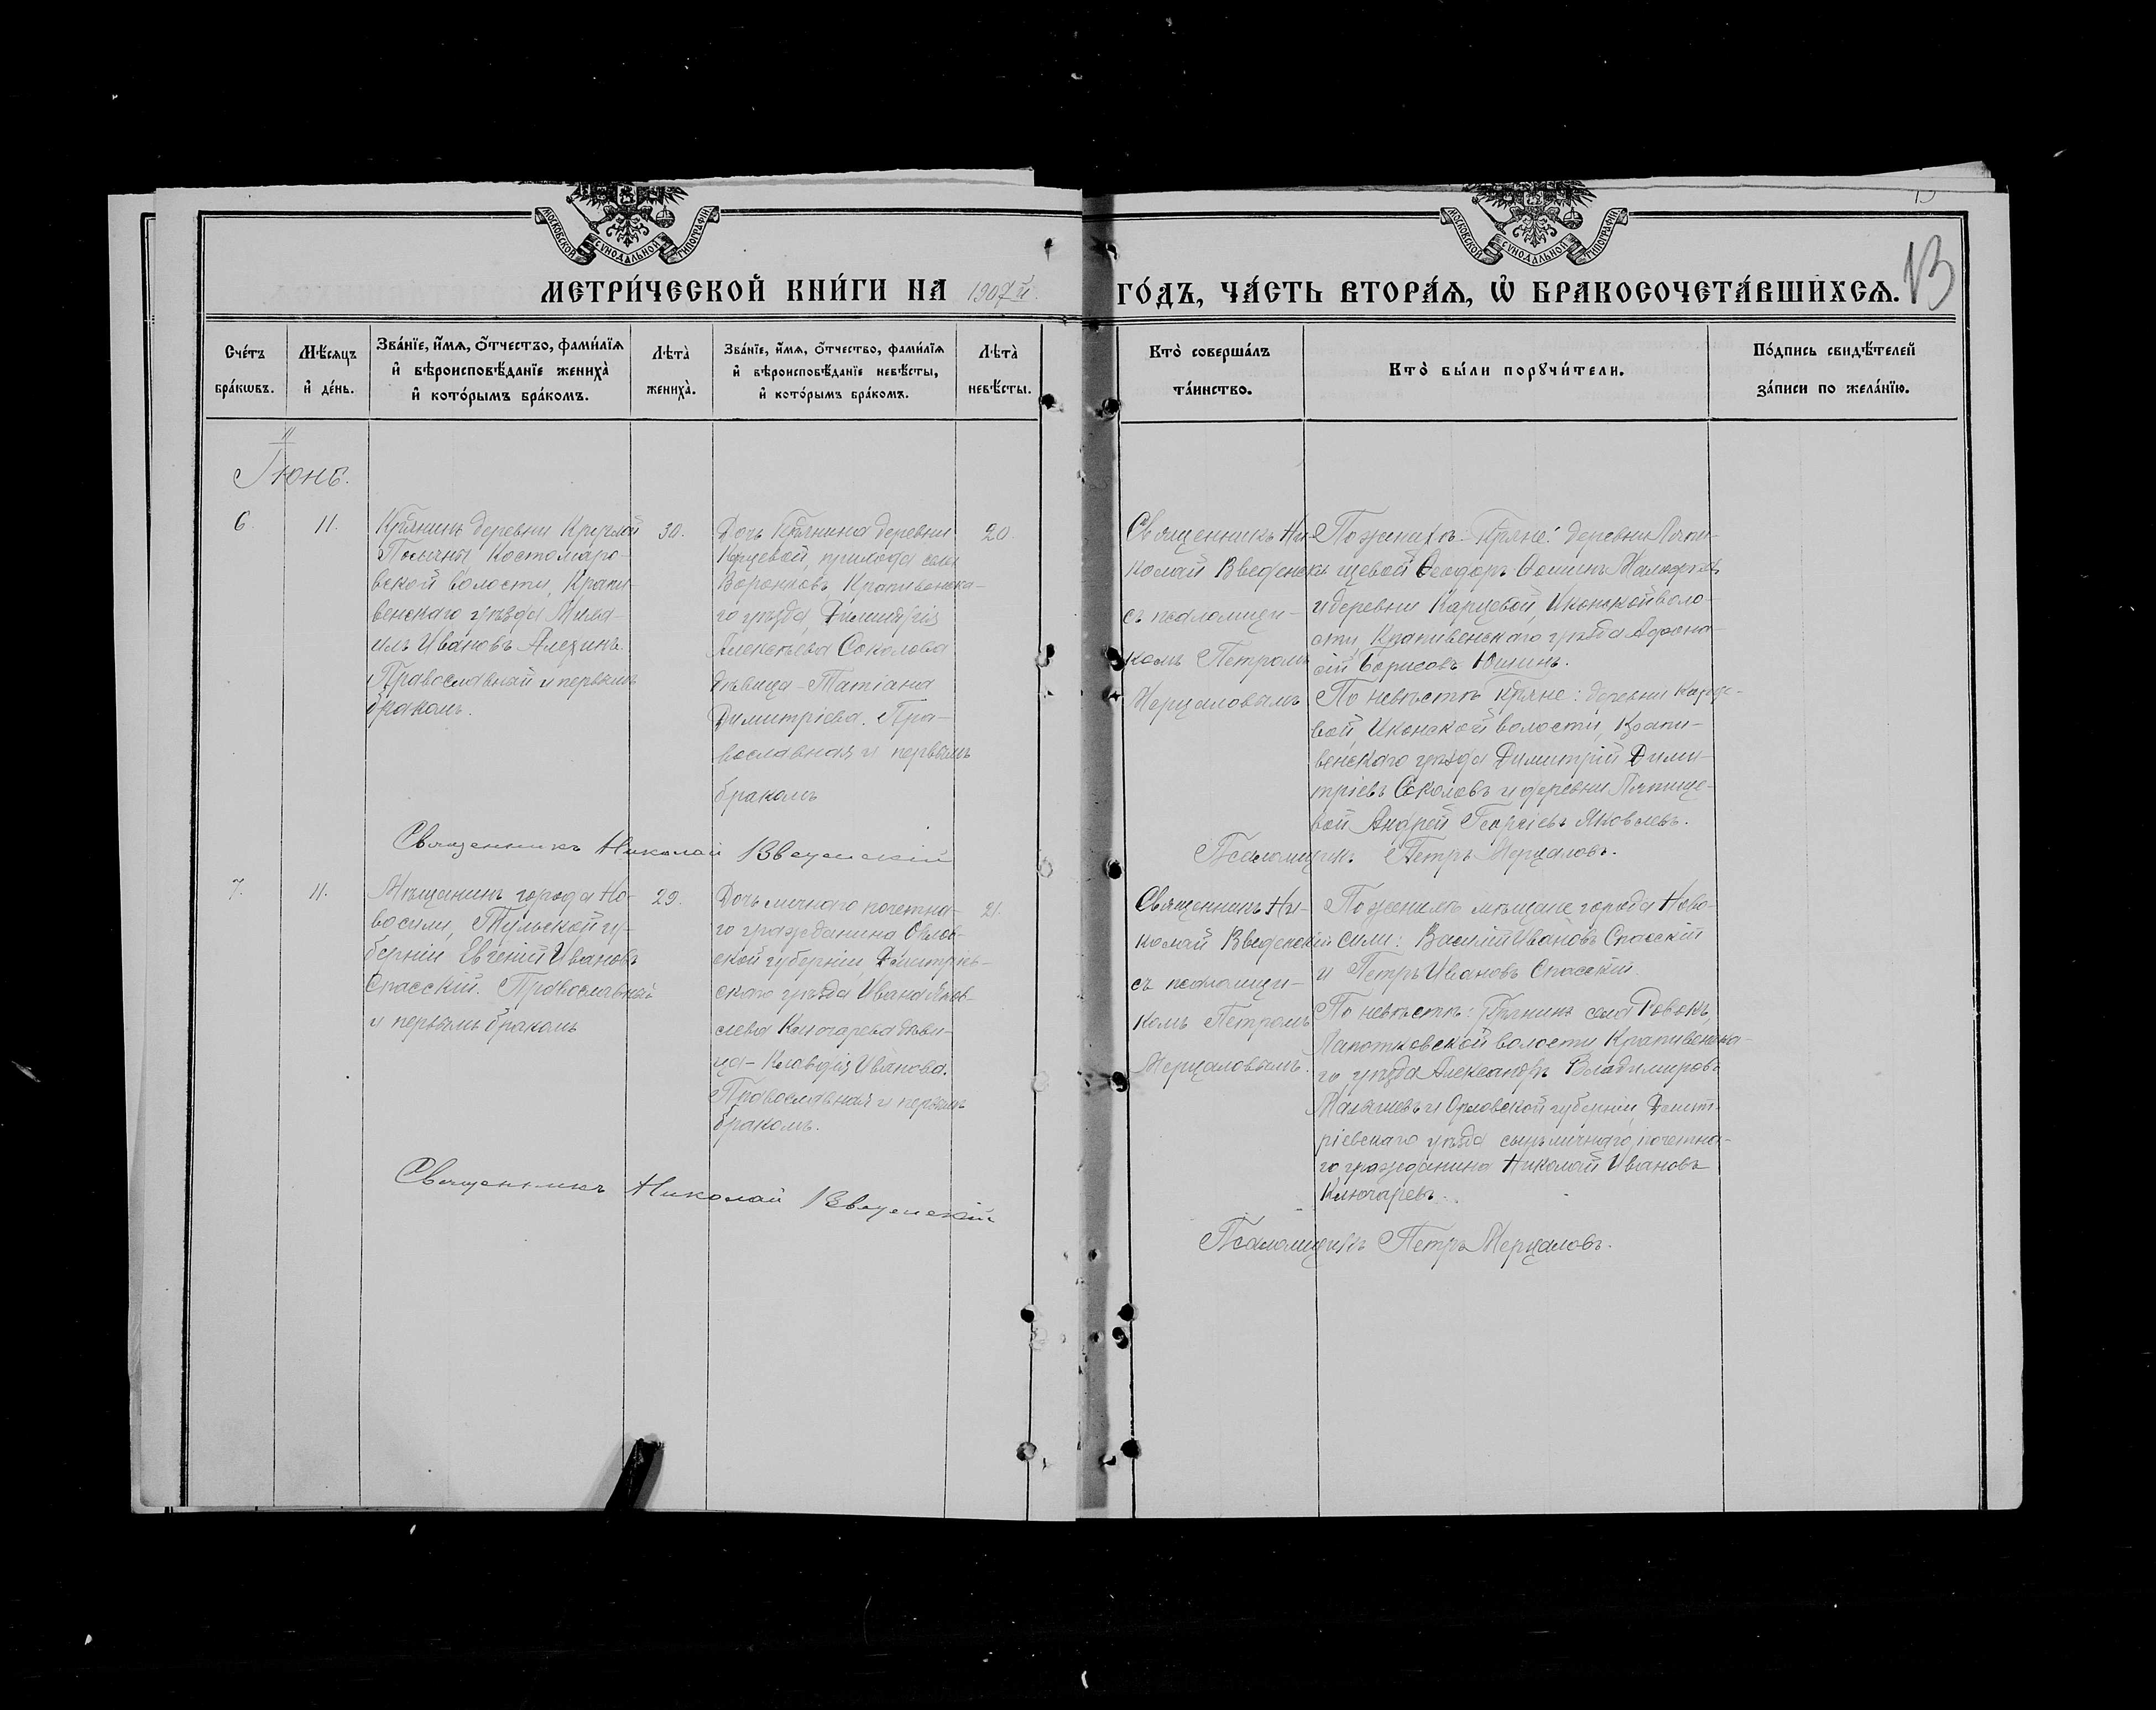 МОСКОВСКОЙ СУНОДАЛЬНОЙ ТИПОГРАФІИ
МОСКОВСКОЙ СУНОДАЛЬНОЙ ТИПОГРАФІИ
13
МЕТРИ́ЧЕСКОЙ КНИ́ГИ НА 1907й ГО́ДЪ, ЧА́СТЬ ВТОРА́Я, Ѡ БРАКОСОЧЕТА́ВШИХСЯ.
Сче́тъ бра́кѡвъ.
Мѣ́сяцъ и де́нь.
Зва́нїе, и́мя, ѻ҆́тчество, фами́лїя и вѣроисповѣ́данїе жениха̀ и кото́рымъ бра́комъ.
Лѣта̀ жениха̀.
Зва́нїе, и́мя, ѻ҆́тчество, фами́лїя и вѣроисповѣ́данїе невѣ́сты, и кото́рымъ бра́комъ.
Лѣта̀ невѣ́сты.
Кто̀ соверша́лъ та́инство.
Кто̀ бы́ли порꙋчи́тели.
По́дпись свидѣ́телей за́писи по жела́нїю.
Іюнь.
6.
11.
Кр̃тянинъ деревни Круглой
Костомаро-
вской волости, Крапи-
венскаго уѣзда Миха-
илъ Ивановъ Алехинъ.
Православный и первымъ
бракомъ.
30.
Дочь Кр̃тянина деревни
Карцевой, прихода села
Воронковъ, Крапивенска-
го уѣзда, Димитрія
Алексѣева Соколова
дѣвица – Татіана
Димитріева. Пра-
вославная и первымъ
бракомъ
20.
Священникъ Ни-
колай Введенскій
съ псаломщи-
комъ Петромъ
Мерцаловымъ
По женихѣ: Кр̃тяне: деревни
Ѳеодоръ
и деревни Карцевой, Иконской воло-
сти, Крапивенскаго уѣзда Афана-
сій Борисовъ Юшинъ.
По невѣстѣ кр̃тяне: деревни Карце-
вой, Иконской волости, Крапи-
венскаго уѣзда Димитрій Дими-
тріевъ Соколовъ и деревни
вой Андрей Георгіевъ Яковлевъ.
Священникъ Николай Введенскій
Псаломщикъ Петръ Мерцаловъ.
7.
11.
Мѣщанинъ города Но-
восили, Тульской гу-
берніи Евгеній Ивановъ
Спасскій. Православный
и первымъ бракомъ
29.
Дочь личнаго почетна-
го гражданина Орлов-
ской губерніи, Дмитріев-
скаго уѣзда Ивана Яков-
лева Ключарева дѣви-
ца – Клавдія Иванова.
Православная и первымъ
бракомъ.
21.
Священникъ Ни-
колай Введенскій
съ псаломщи-
комъ Петромъ
Мерцаловымъ.
По женихѣ мѣщане города Ново-
сили: Василій Ивановъ Спасскій
и Петръ Ивановъ Спасскій.
По невѣстѣ: Кр̃тянинъ села Ровокъ,
Лапотковской волости Крапивенска-
го уѣзда Александръ Владимировъ
и Орловской губерніи, Дмит-
ріевскаго уѣзда сынъ личнаго почетна-
го гражданина Николай Ивановъ
Ключаревъ.
Священникъ Николай Введенскій
Псаломщикъ Петръ Мерцаловъ.